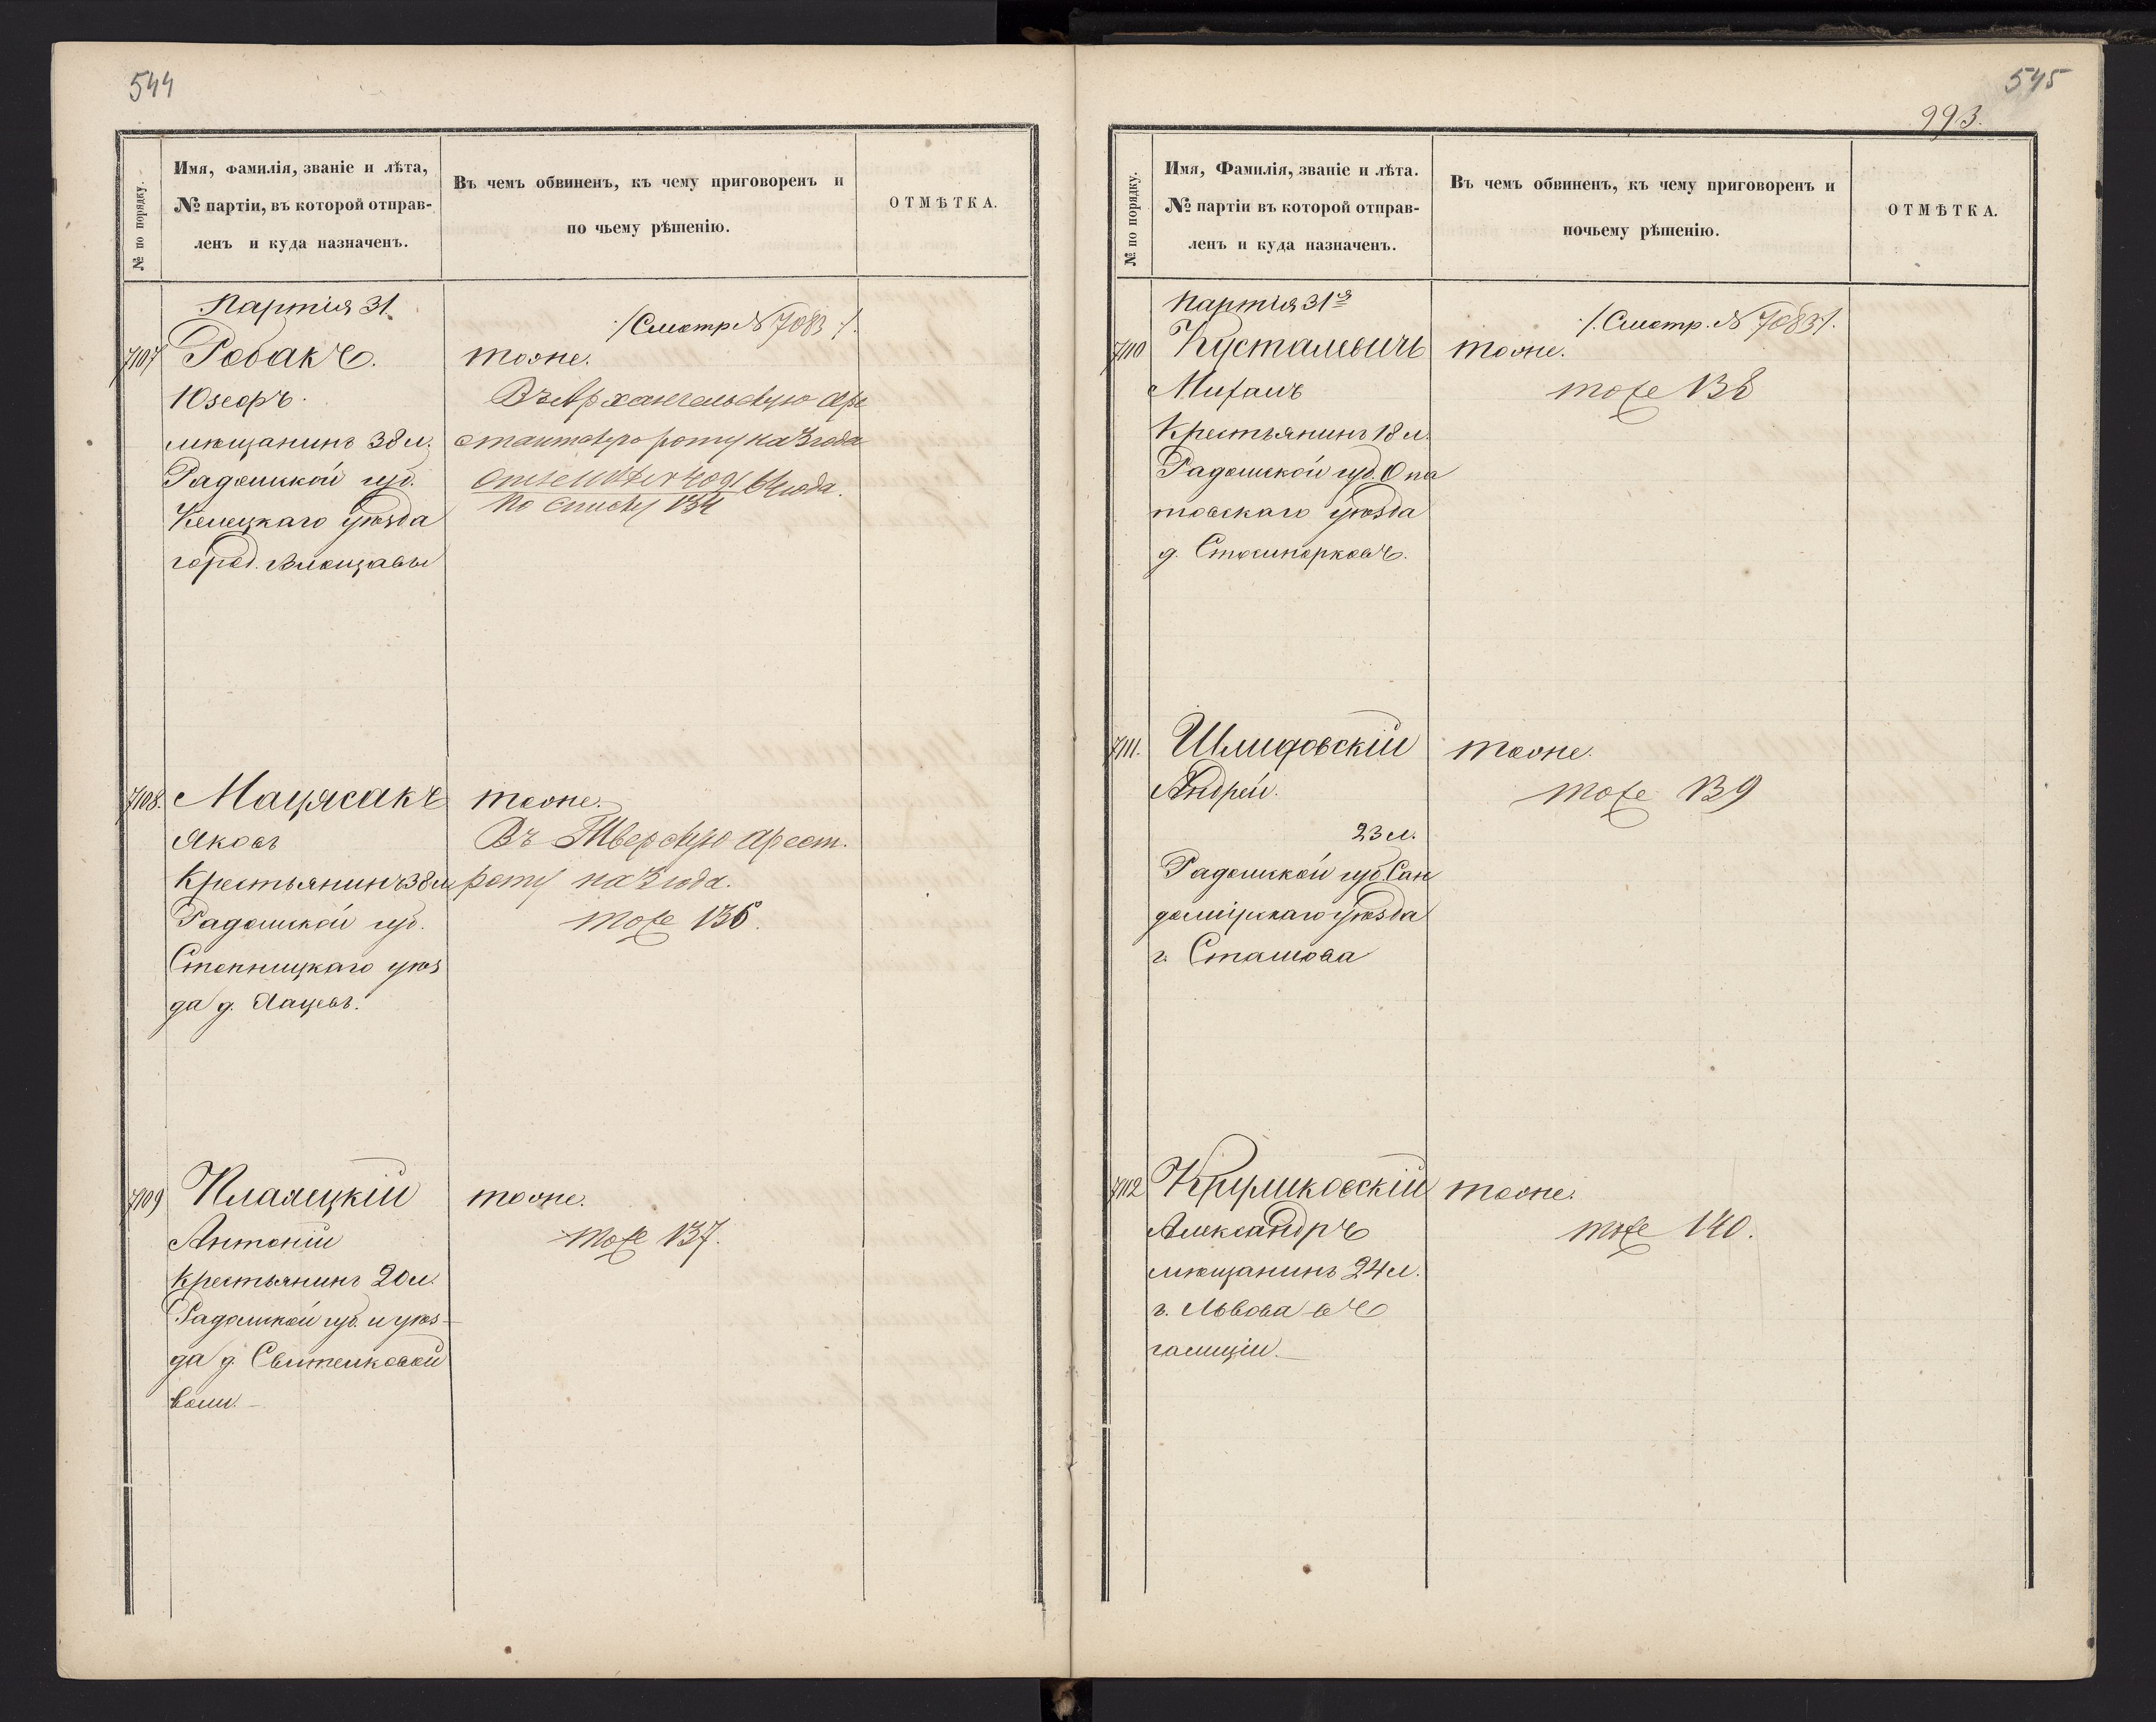 544
№ по порядку.
Имя, фамилія, званіе и лѣта,
№ партіи, въ которой отправ-
ленъ и куда назначенъ.
Въ чемъ обвиненъ, къ чему приговоренъ и
по чьему рѣшенію.
ОТМѢТКА.
Партія 31.
/Смотр № 7083/.
7107
Робакъ.
тоже.
Юзефъ.
Въ Архангельскую аре
мѣщанинъ 38 л.
стантскую роту на 3 года
Радомской губ.
64 года.
Келецкаго уѣзда
По списку 134
город. Влощавы
7108.
тоже.
Яковъ
Въ Тверскую Арест.
Крестьянинъ 38 л.
роту на 3 года.
Радомской губ.
тоже 136.
Стопницкаго уѣз
да д.
7109
тоже.
Антоній
тоже 137.
Крестьянинъ 20 л.
Радомской губ. и уѣз-
да д.
воли.
545
993.
№ по порядку.
Имя, Фамилія, званіе и лѣта.
№ партіи въ которой отправ-
ленъ и куда назначенъ.
Въ чемъ обвиненъ, къ чему приговоренъ и
почьему рѣшенію.
ОТМѢТКА.
Партія 31я
/. Смотр. № 7083/.
7110
тоже.
тоже 138
Крестьянинъ 18 л.
Радомской губ. Опа
товскаго уѣзда
д.
7111.
тоже.
Андрей.
тоже 139
23 л.
Радомской губ. Сан
домірскаго уѣзда
г. Сташова
7112
тоже.
Александръ
тоже 140.
мѣщанинъ 24 л.
г. Львова въ
галиціи.